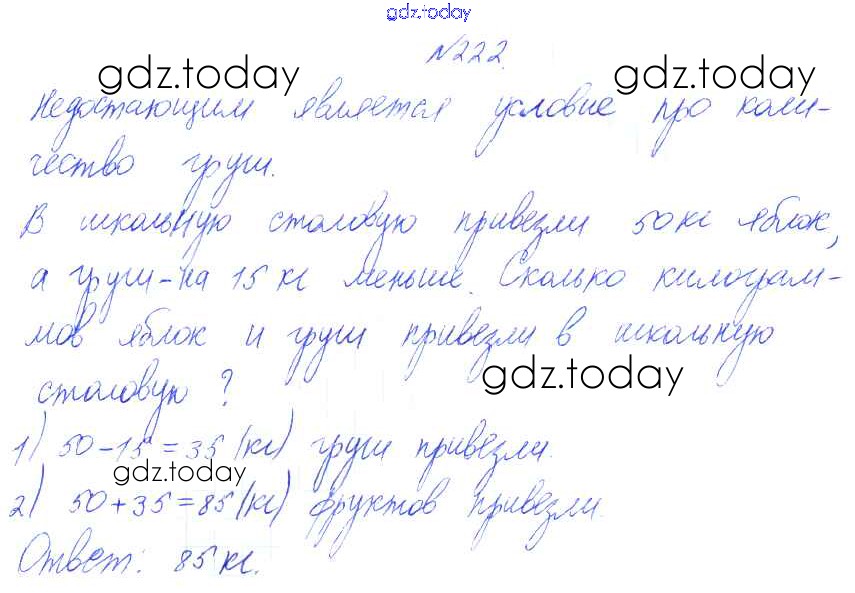 gdz.today
№222.
gdz.today gdz.today
Недостающим является условие про коли-
чество груш.
В школьную столовую привезли 50 кг яблок,
а груш - на 15 кг меньше. Сколько килограм-
мов яблок и груш привезли в школьную
gdz.today
столовую?
1) 50-15=35 (кг) груш привезли.
gdz.today
2) 50+35=85 (кг) фруктов привезли.
Ответ: 85 кг.